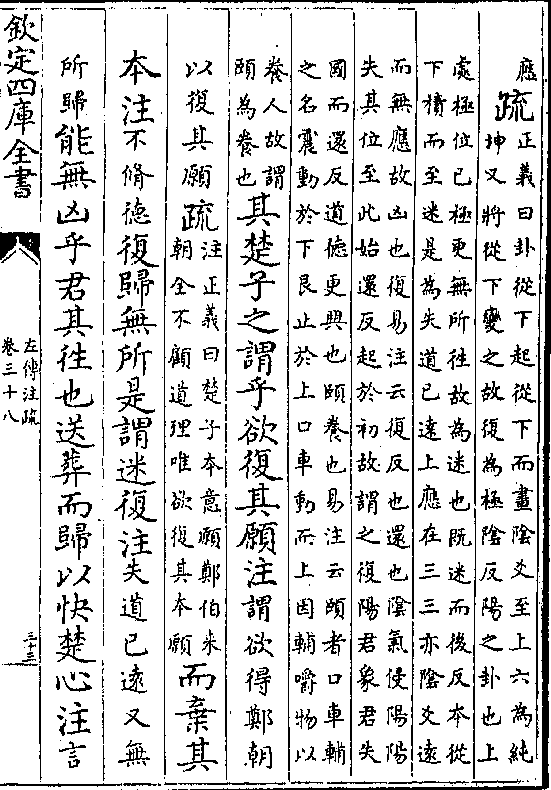 應疏正義曰卦從下起從下而畫陰爻至上六為純
坤又將從下變之故復為極陰反陽之卦也上
處極位已極更無所往故為迷也既迷而後反本從
下積而至迷是為失道已遠上應在三三亦陰爻遠
而無應故凶也復易注云復反也還也陰氣侵陽陽
失其位至此始還反起於初故謂之復陽君象君失
國而還反道德更興也頤養也易注云頤者口車輔
之名震動於下艮止於上口車動而上因輔嚼物以
養人故謂
頤為養也其楚子之謂乎欲復其願注謂欲得鄭朝
以復其願疏注正義曰楚子本意願鄭伯来
朝全不顧道理唯欲復其本願而棄其
本注不脩德復歸無所是謂迷復注失道已遠又無
所歸能無凶乎君其往也送葬而歸以快楚心注言
欽定四庫全書
左傳注疏
卷三十八
三十三